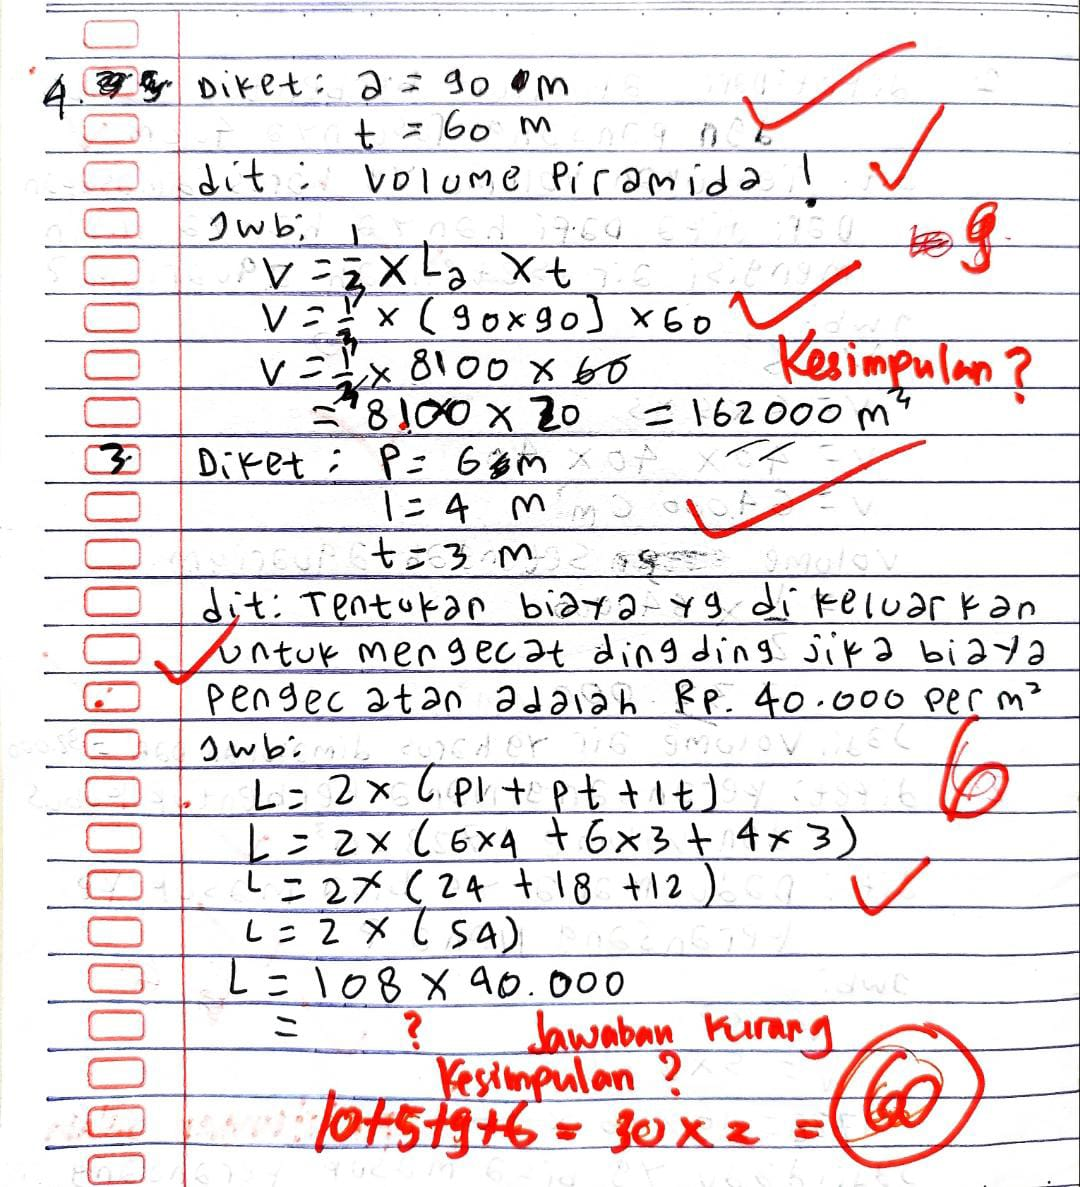 4. Diket : a = 90 m
t = 60 m
dit : Volume Piramida !
Jwb:
9
V = 1/3 x La x t
V = 1/3 x (90x90) x 60
V = 1/3 x 8100 x 60
Kesimpulan ?
= 8100 x 20 = 162000 m³
3 Diket : P = 6 m
l = 4 m
t = 3 m
dit: Tentukan biaya yg di keluarkan
untuk mengecat dingding jika biaya
pengecatan adalah Rp. 40.000 per m²
Jwb:
6
L = 2 x (pl + pt + lt)
L = 2 x (6x4 + 6x3 + 4x3)
L = 2 x (24 + 18 + 12)
L = 2 x (54)
L = 108 x 40.000
= ? Jawaban Kurang
Kesimpulan ?
10+5+9+6 = 30 x 2 = 60